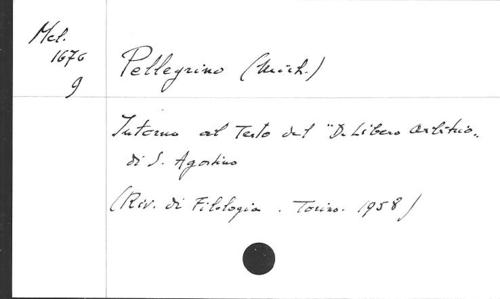 Mel.
1676
9
Pellegrino (Mich.)
Intorno al Testo del "De Libero Arbitrio„
di S. Agostino
(Riv. di Filologia. Torino. 1958)